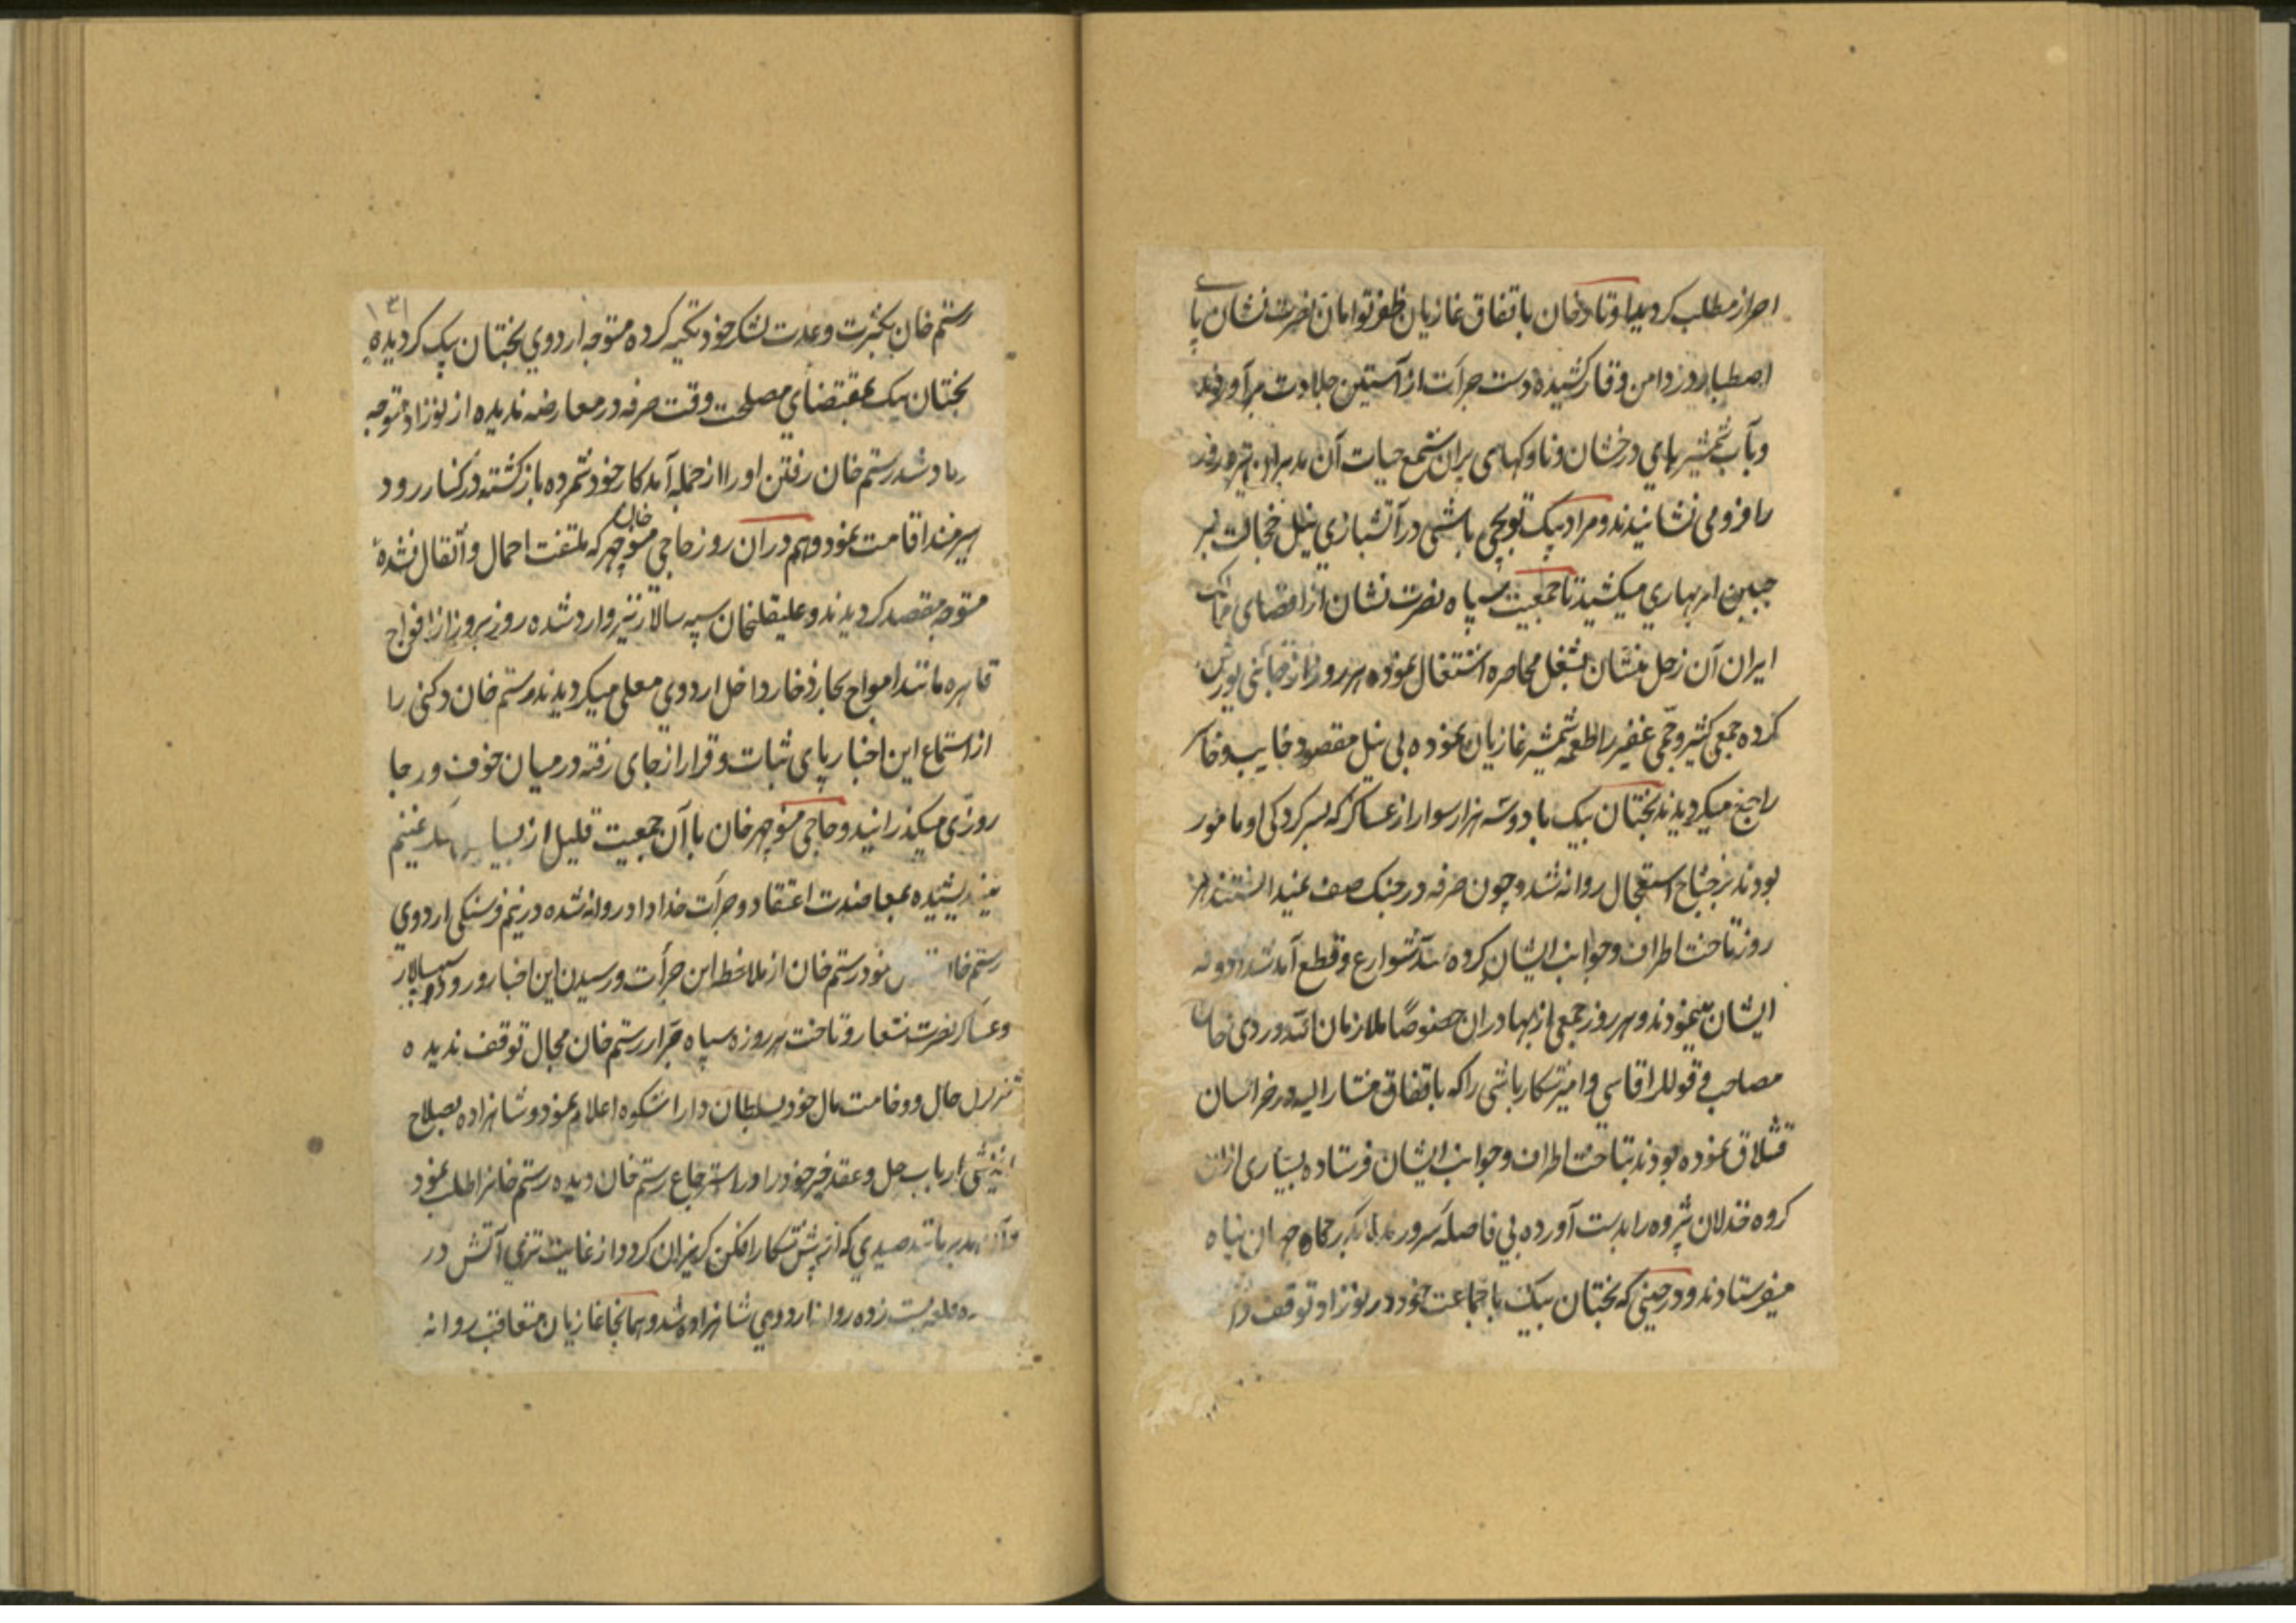 احراز مطلب کردید اوتادخان باتفاق غازیان ظفر توامان نصرت نشان پای
اصطبار در دامن وقار کشیده دست جرأت از آستین جلادت برآوردند
وبآب شمشیرهای درخشان وناوکهای پران شمع حیات آن مدبران تیره روز
را فرو می نشانیدند ومراد بیک توبچی باشی در آتشبازی نیل خجالت بر
جبین ابر بهاری میکشید تا جمعیت سپاه نصرت نشان از اقصای ممالک
ایران آن زحل منشان بشغل محاصره اشتغال نموده هر روز از جائی یورش
کرده جمعی کثیر وجمی غفیر را طعمه شمشیر غازیان نموده بی نیل مقصود خایب وخاسر
راجع میکردیدند بختان بیک با دوسه هزار سوار از عساکر که بسرکردکی او مامور
بودند برجناح استعجال روانه شد وچون صرفه در جنک صف نمیدانستند هر
روز تاخت اطراف وجوانب ایشان کرده سد شوارع وقطع آمد شد
ایشان مینمودند وهر روز جمعی از بهادران خصوصا ملازمان
مصاحب قوللراقاسی وامیرشکارباشی را که باتفاق مشارالیه در خراسان
قشلاق نموده بودند بتاخت اطراف وجوانب ایشان فرستاده بسیاری از ان
کروه خذلان پژوه را بدست آورده بی فاصله بدرکاه جهان پناه
میفرستادند ودر حینی که بختان بیک با جماعت خود در نوزاد توقف داشت
۱۳۱
رستم خان بکثرت وعدت لشکر خود تکیه کرده متوجه اردوی بختان بیک کردیده
بختان بیک بمقتضای مصلحت وقت صرفه در معارضه ندیده از نوزاد متوجه
شد رستم خان رفتن اورا از جمله آمد کار خود شمرده بازکشته در کنار رود
هیرمند اقامت نمود وهم دران روز حاجی منوچهر خان که ملتفت احمال واثقال نشده
متوجه مقصد کردیدند وعلیقلیخان سپه سالار نیز وارد شده روز بروز از افواج
قاهره مانند امواج بحار ذخار داخل اردوی معلی میکردیدند رستم خان دکنی را
از استماع این اخبار پای ثبات وقرار از جای رفته در میان خوف ورجا
روزی میکذرانید وحاجی منوچهر خان با آن جمعیت قلیل از غنیم
نیندیشیده بمعاضدت اعتقاد وجرأت خداداد روانه شده در نیم فرسنکی اردوی
رستم خان نمود رستم خان از ملاحظه این جرأت ورسیدن این اخبار وورود سپهسالار
وعساکر نصرت شعار وتاخت هر روزه سپاه جرار رستم خان مجال توقف ندیده
تزلزل حال ووخامت مال خود بسلطان داراشکوه اعلام نمود وشاهزاده بصلاح
ارباب حل وعقد خیر خود را در استرجاع رستم خان دیده رستم خانرا طلب نمود
مدبر مانند صیدی که از پیش شکار افکن کریزان کردد از غایت تیزی آتش در
زده روانه اردوی شاهزاده شد وهمانجا غازیان متعاقب روانه